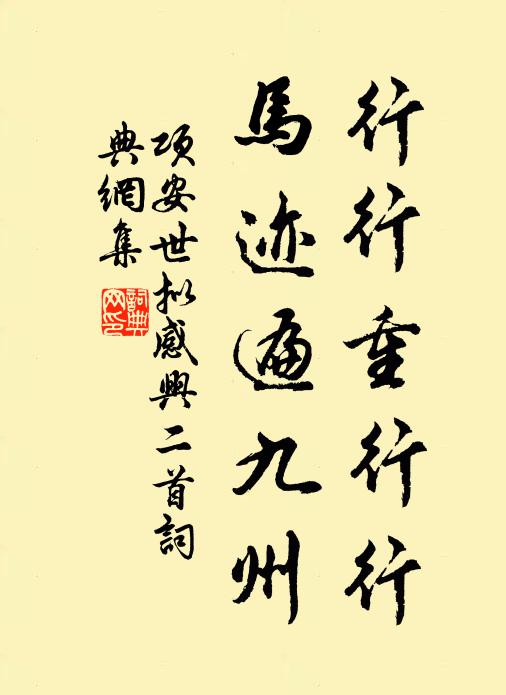 行行重行行
馬迹遍九州
項安世拟感興二首詞
典網集
詞典網印